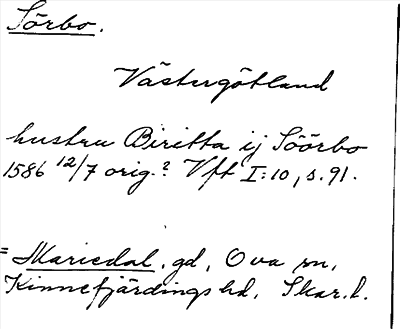 Sörbo.
Västergötland
hustru Biritta ij Söörbo
1586 12/7 orig.? Vft I:10, s. 91.
= Mariedal, gd, Ova sn,
Kinnefjärdings hd, Skar. l.